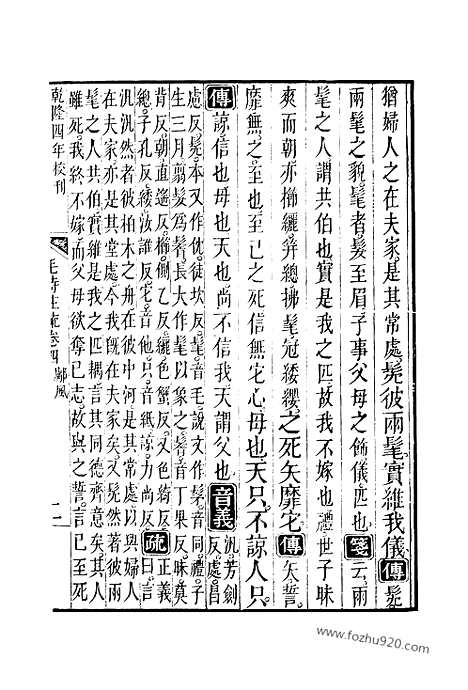 猶婦人之在夫家是其常處髧彼兩髦實維我儀傳髧
兩髦之貌髦者髮至眉子事父母之飾儀匹也箋云兩
髦之人謂共伯也實是我之匹故我不嫁也禮世子昧
爽而朝亦櫛纚笄總拂髦冠緌纓之死矢靡它傳矢誓
靡無之至也至己之死信無它心母也天只不諒人只
傳諒信也母也天也尚不信我天謂父也音義汎芳劍反處昌
慮反髧本又作㐤徒坎反髦音毛說文作髳音同禮子
生三月翦髮為鬌長大作髦以象之鬌音丁果反昧莫
背反朝直遙反櫛側乙反纚色蟹反又色綺反
總子孔反緌汝誰反它音他只音紙諒力尚反疏正義曰言
汎汎然者彼柏木之舟在彼中河是其常處以興婦人
在夫家亦是其常處今我既在夫家矣又髧然著彼兩
髦之人共伯實維是我之匹耦言其同德齊意矣其人
雖死我終不嫁而父母欲奪己志故與之誓言己至死
乾隆四年校刊
毛詩注疏卷四鄘風
二
www.fozhu920.com